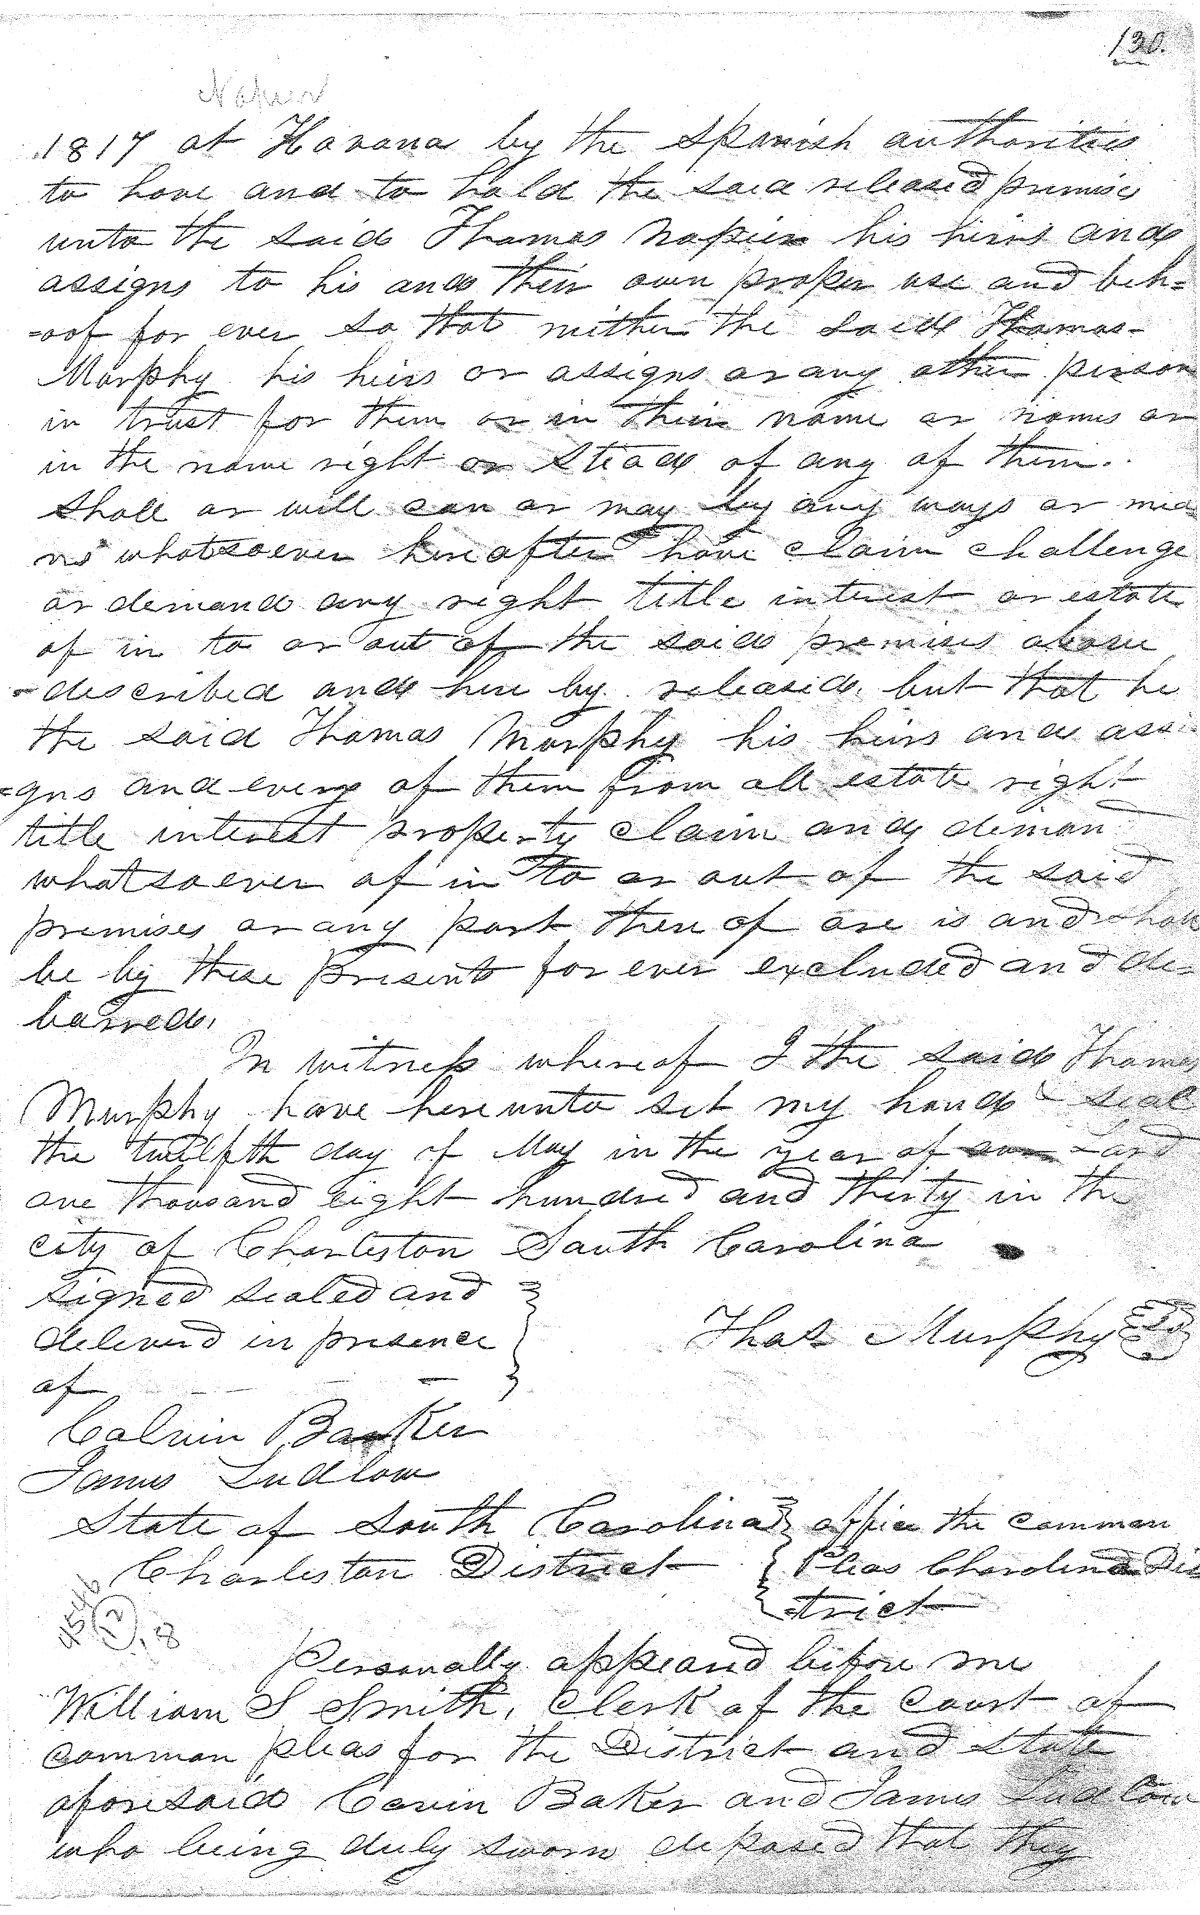 130.
Napier
1817 at Havana by the Spanish authorities
to have and to hold the said released premises
unto the said Thomas Napier his heirs and
assigns to his and their own proper use and beh=
=oof for ever so that neither the said Thomas
Murphy his heirs or assigns or any other person
in trust for them or in their name or names or
in the name right or stead of any of them.
shall or will can or may by any ways or mea
ns whatsoever hereafter have claim challenge
or demand any right title interest or estate
of in to or out of the said premises above
described and here by released, but that he
the said Thomas Murphy his heirs and assi
=gns and every of them from all estate right
title interest property claim and deman
whatsoever of in to or out of the said
premises or any part there of are is and shall
be by these presents for ever excluded and de=
barred.
In witness whereof I the said Thomas
Murphy have hereunto set my hand & seal
the twelfth day of May in the year of our Lord
one thousand eight hundred and thirty in the
city of Charleston South Carolina
signed sealed and
deliverd in presence
of
Thos Murphy
Calvin Baker
James Ludlow
State of South Carolina } office the common
Charleston District } Pleas Charolina Dis
=trict
4546
12
18
Personally appeard before me
William S Smith, Clerk of the Court of
common pleas for the District and State
aforesaid Cavin Baker and James Ludlow
who being duly sworn deposed that they